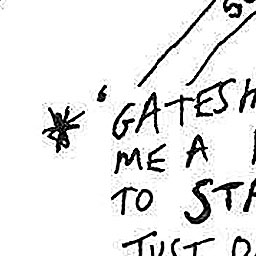 * 'GATESH
ME A
TO STA
JUST